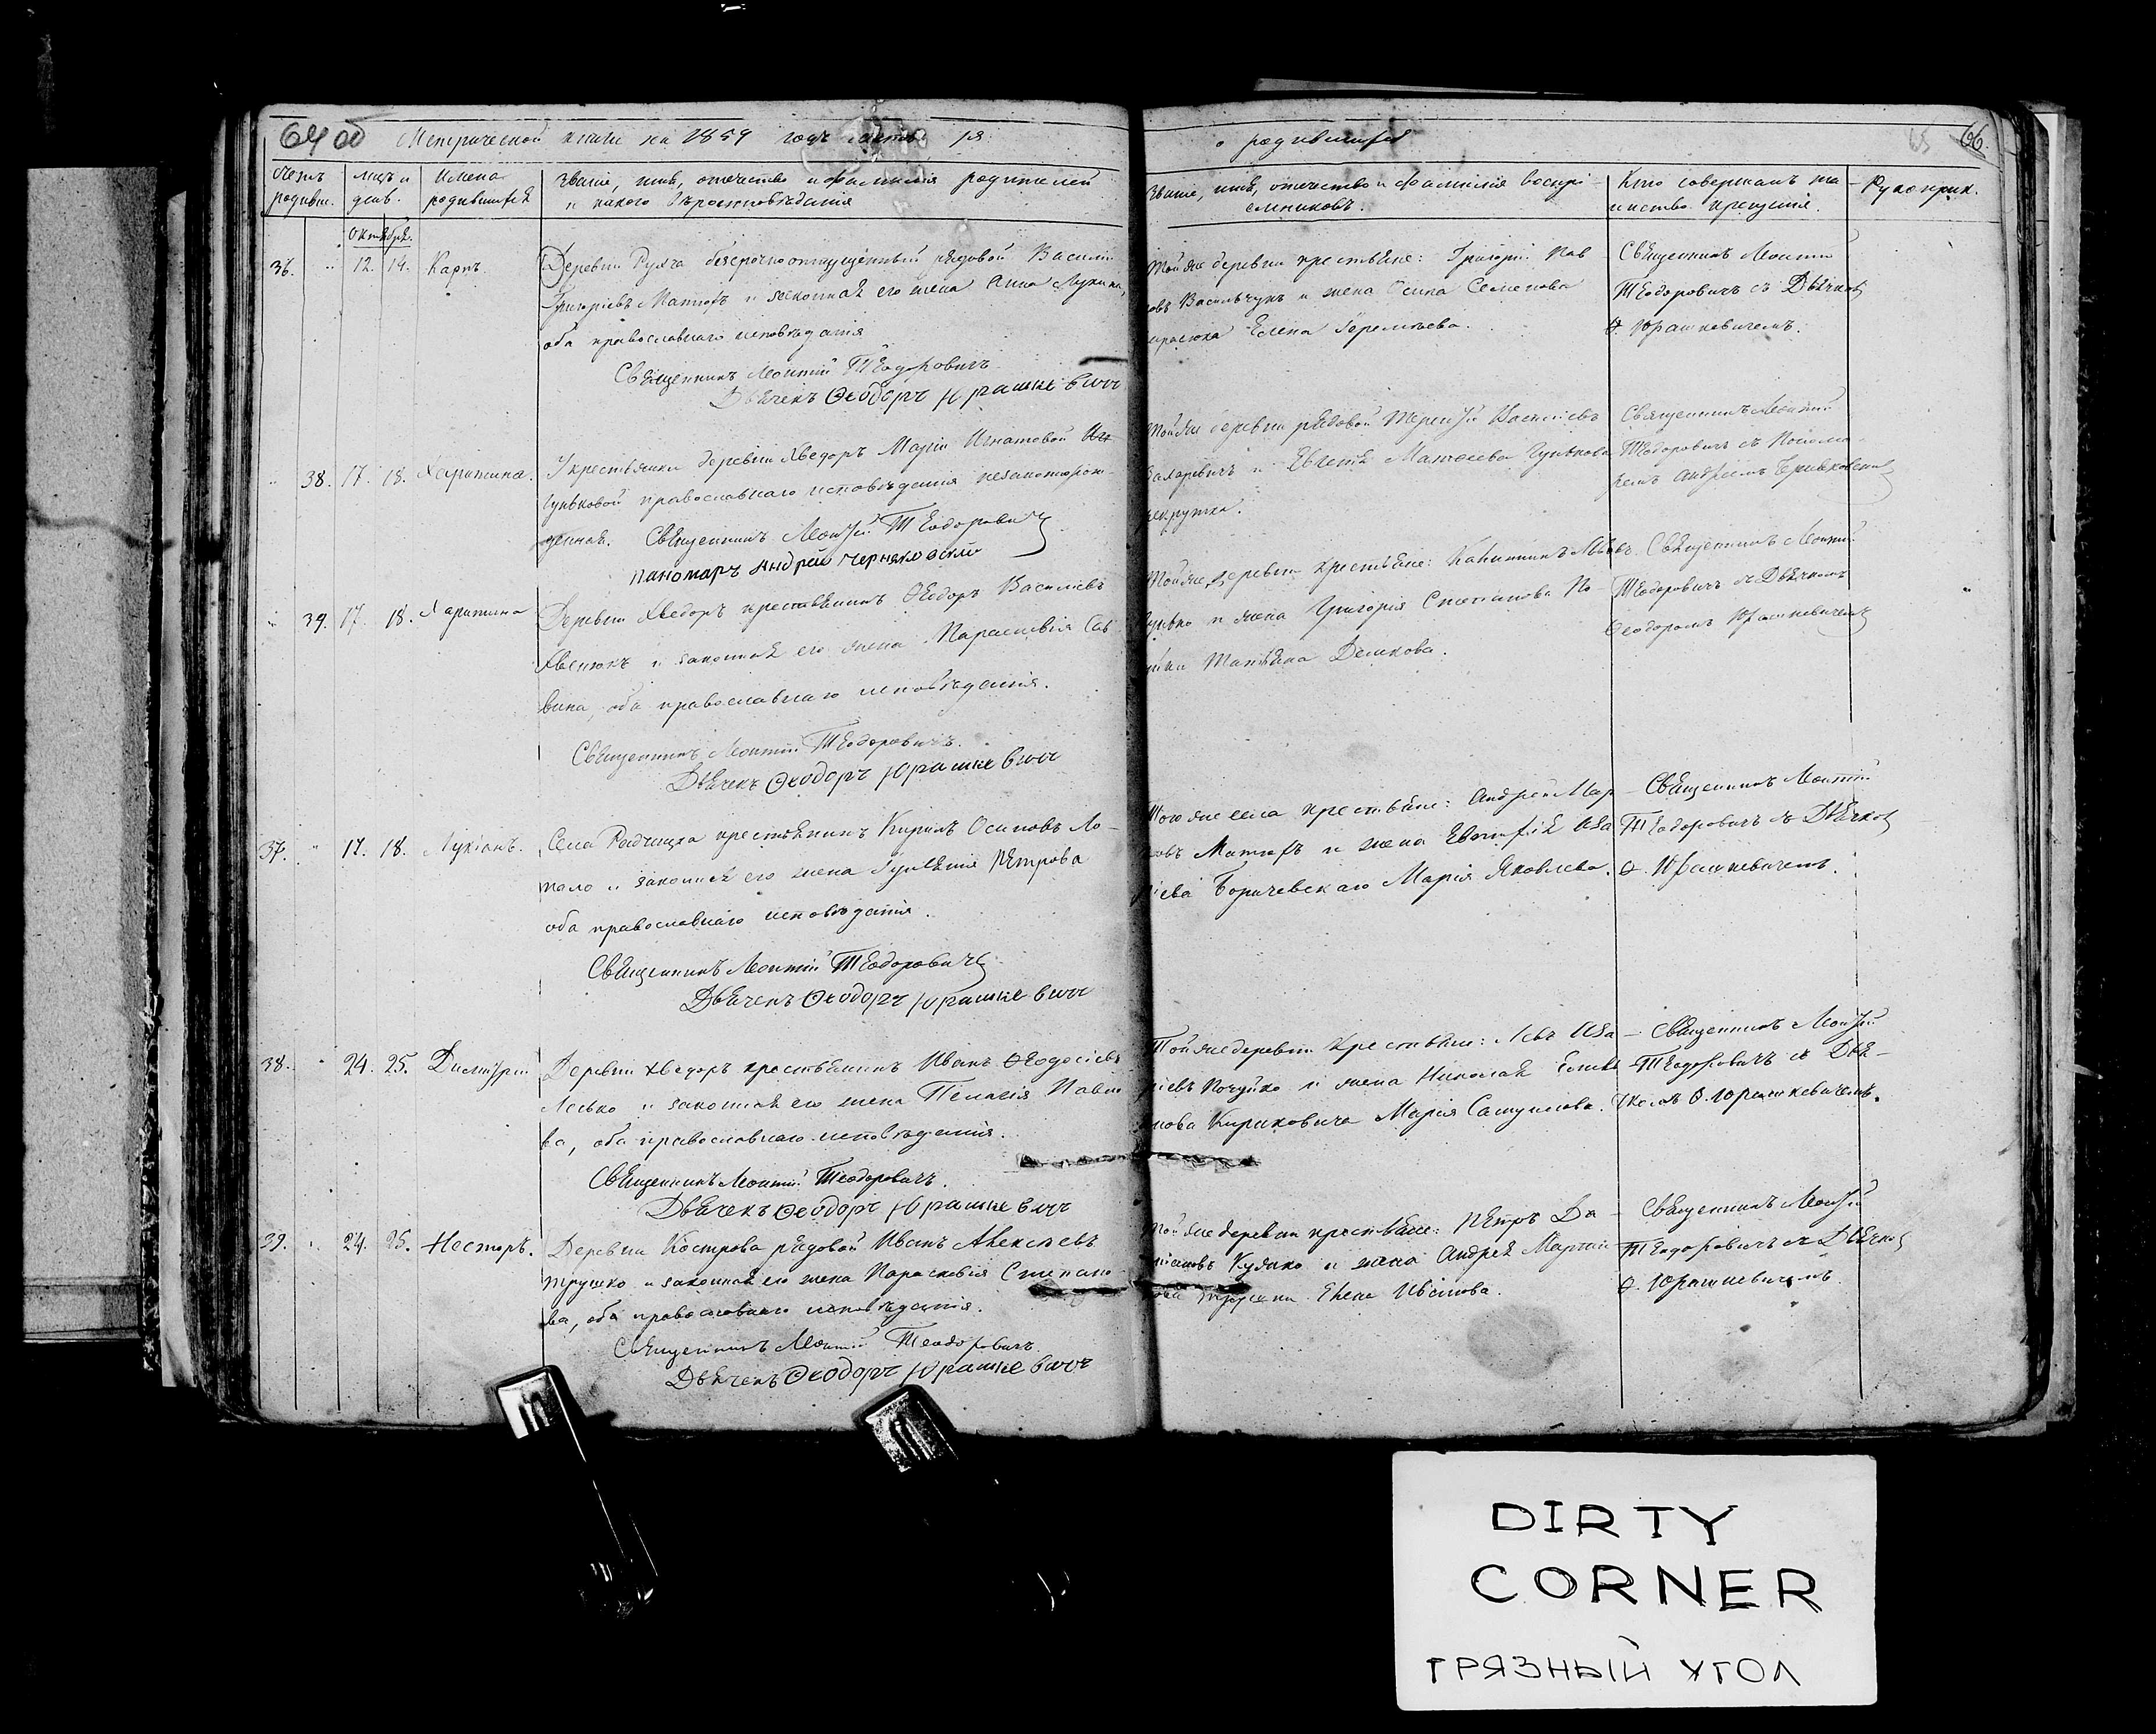 64 об Метрической книги на 1859 годъ
о родившихся 66.
Счетъ родивш. мцъ и день. Имена родившихся Званіе, имя, отечество и фамилія родителей и какого вѣроисповѣданія
Званіе, имя, отечество и фамилія воспріемниковъ. Кто совершалъ таинство крещенія. Рукоприк.
Октября.
36. 12. 14. Карпъ
Деревни Рухча безсрочноотпущенный рядовой Василій
Григорьевъ и законная его жена Анна
оба православнаго исповѣданія
Священникъ Леонтій Теодоровичъ
Дьячекъ Ѳеодоръ Юрашкевичъ
Той же деревни крестьяне: Григорій Пав
овъ Васильчукъ и жена Осипа Семенова
Елена Еремѣева.
Священникъ Леонтій
Теодоровичъ съ Дьячком
Ѳ. Юрашкевичемъ.
38. 17. 18. Харитина.
У крестьянки деревни Хведоръ Маріи Игнатовой
православнаго исповѣданія незаконорож-
денная. Священникъ Леонтій Теодоровичъ
Пономаръ Андрей Черняковскій
Той же деревни рядовой Терентій Васильевъ
Захаревичъ и Евгенія Матвѣева
рекрутка.
Священникъ Леонтій
Теодоровичъ съ Понома-
ремъ Андреемъ
39. 17. 18. Харитина
Деревни Хведоръ крестьянинъ Ѳеодоръ Васильевъ
Хвенюкъ и законная его жена Параскевія Сав
вина, оба православнаго исповѣданія.
Священникъ Леонтій Теодоровичъ.
Дьячекъ Ѳеодоръ Юрашкевичъ
Той же деревни крестьяне:
и жена Григорія Степанова По-
Татьяна Демкова.
Священникъ Леонтій
Теодоровичъ съ Дьячкомъ
Ѳеодоромъ Юрашкевичемъ
37. 17. 18. Лукіанъ.
Села Радчицка крестьянинъ Кирилъ Осиповъ Ло-
и законная его жена Гулянія Петрова
оба православнаго исповѣданія.
Священникъ Леонтій Теодоровичъ
Дьячекъ Ѳеодоръ Юрашкевичъ
Того же села крестьяне: Андрей Мар
овъ и жена Евстафія Аза
іева Боричевскаго Марія Яковлева.
Священникъ Леонтій
Теодоровичъ съ Дьячком
Ѳ. Юрашкевичемъ.
38. 24. 25. Димитрій
Деревни Хведоръ крестьянинъ Иванъ Ѳеодосіевъ
Лесько и законная его жена Пелагія Павло
ва, оба православнаго исповѣданія.
Священникъ Леонтій Теодоровичъ.
Дьячекъ Ѳеодоръ Юрашкевичъ
Той же деревни Крестьяне: Левъ Аза
ріевъ Почуйко и жена Николая
нова Кириковича Марія
Священникъ Леонтій
Теодоровичъ съ Дья-
чкомъ Ѳ. Юрашкевичемъ.
39. 24. 25. Несторъ.
Деревни Кострова рядовой Иванъ Алексѣевъ
Трушко и законная его жена Параскевія Степано-
ва, оба православнаго исповѣданія.
Священникъ Леонтій Теодоровичъ
Дьячекъ Ѳеодоръ Юрашкевичъ
Той же деревни крестьяне: Петръ Да-
міановъ и жена Андрея Мартин
Елена Иванова.
Священникъ Леонтій
Теодоровичъ съ Дьячком
Ѳ. Юрашкевичемъ.
DIRTY
CORNER
ГРЯЗНЫЙ УГОЛ